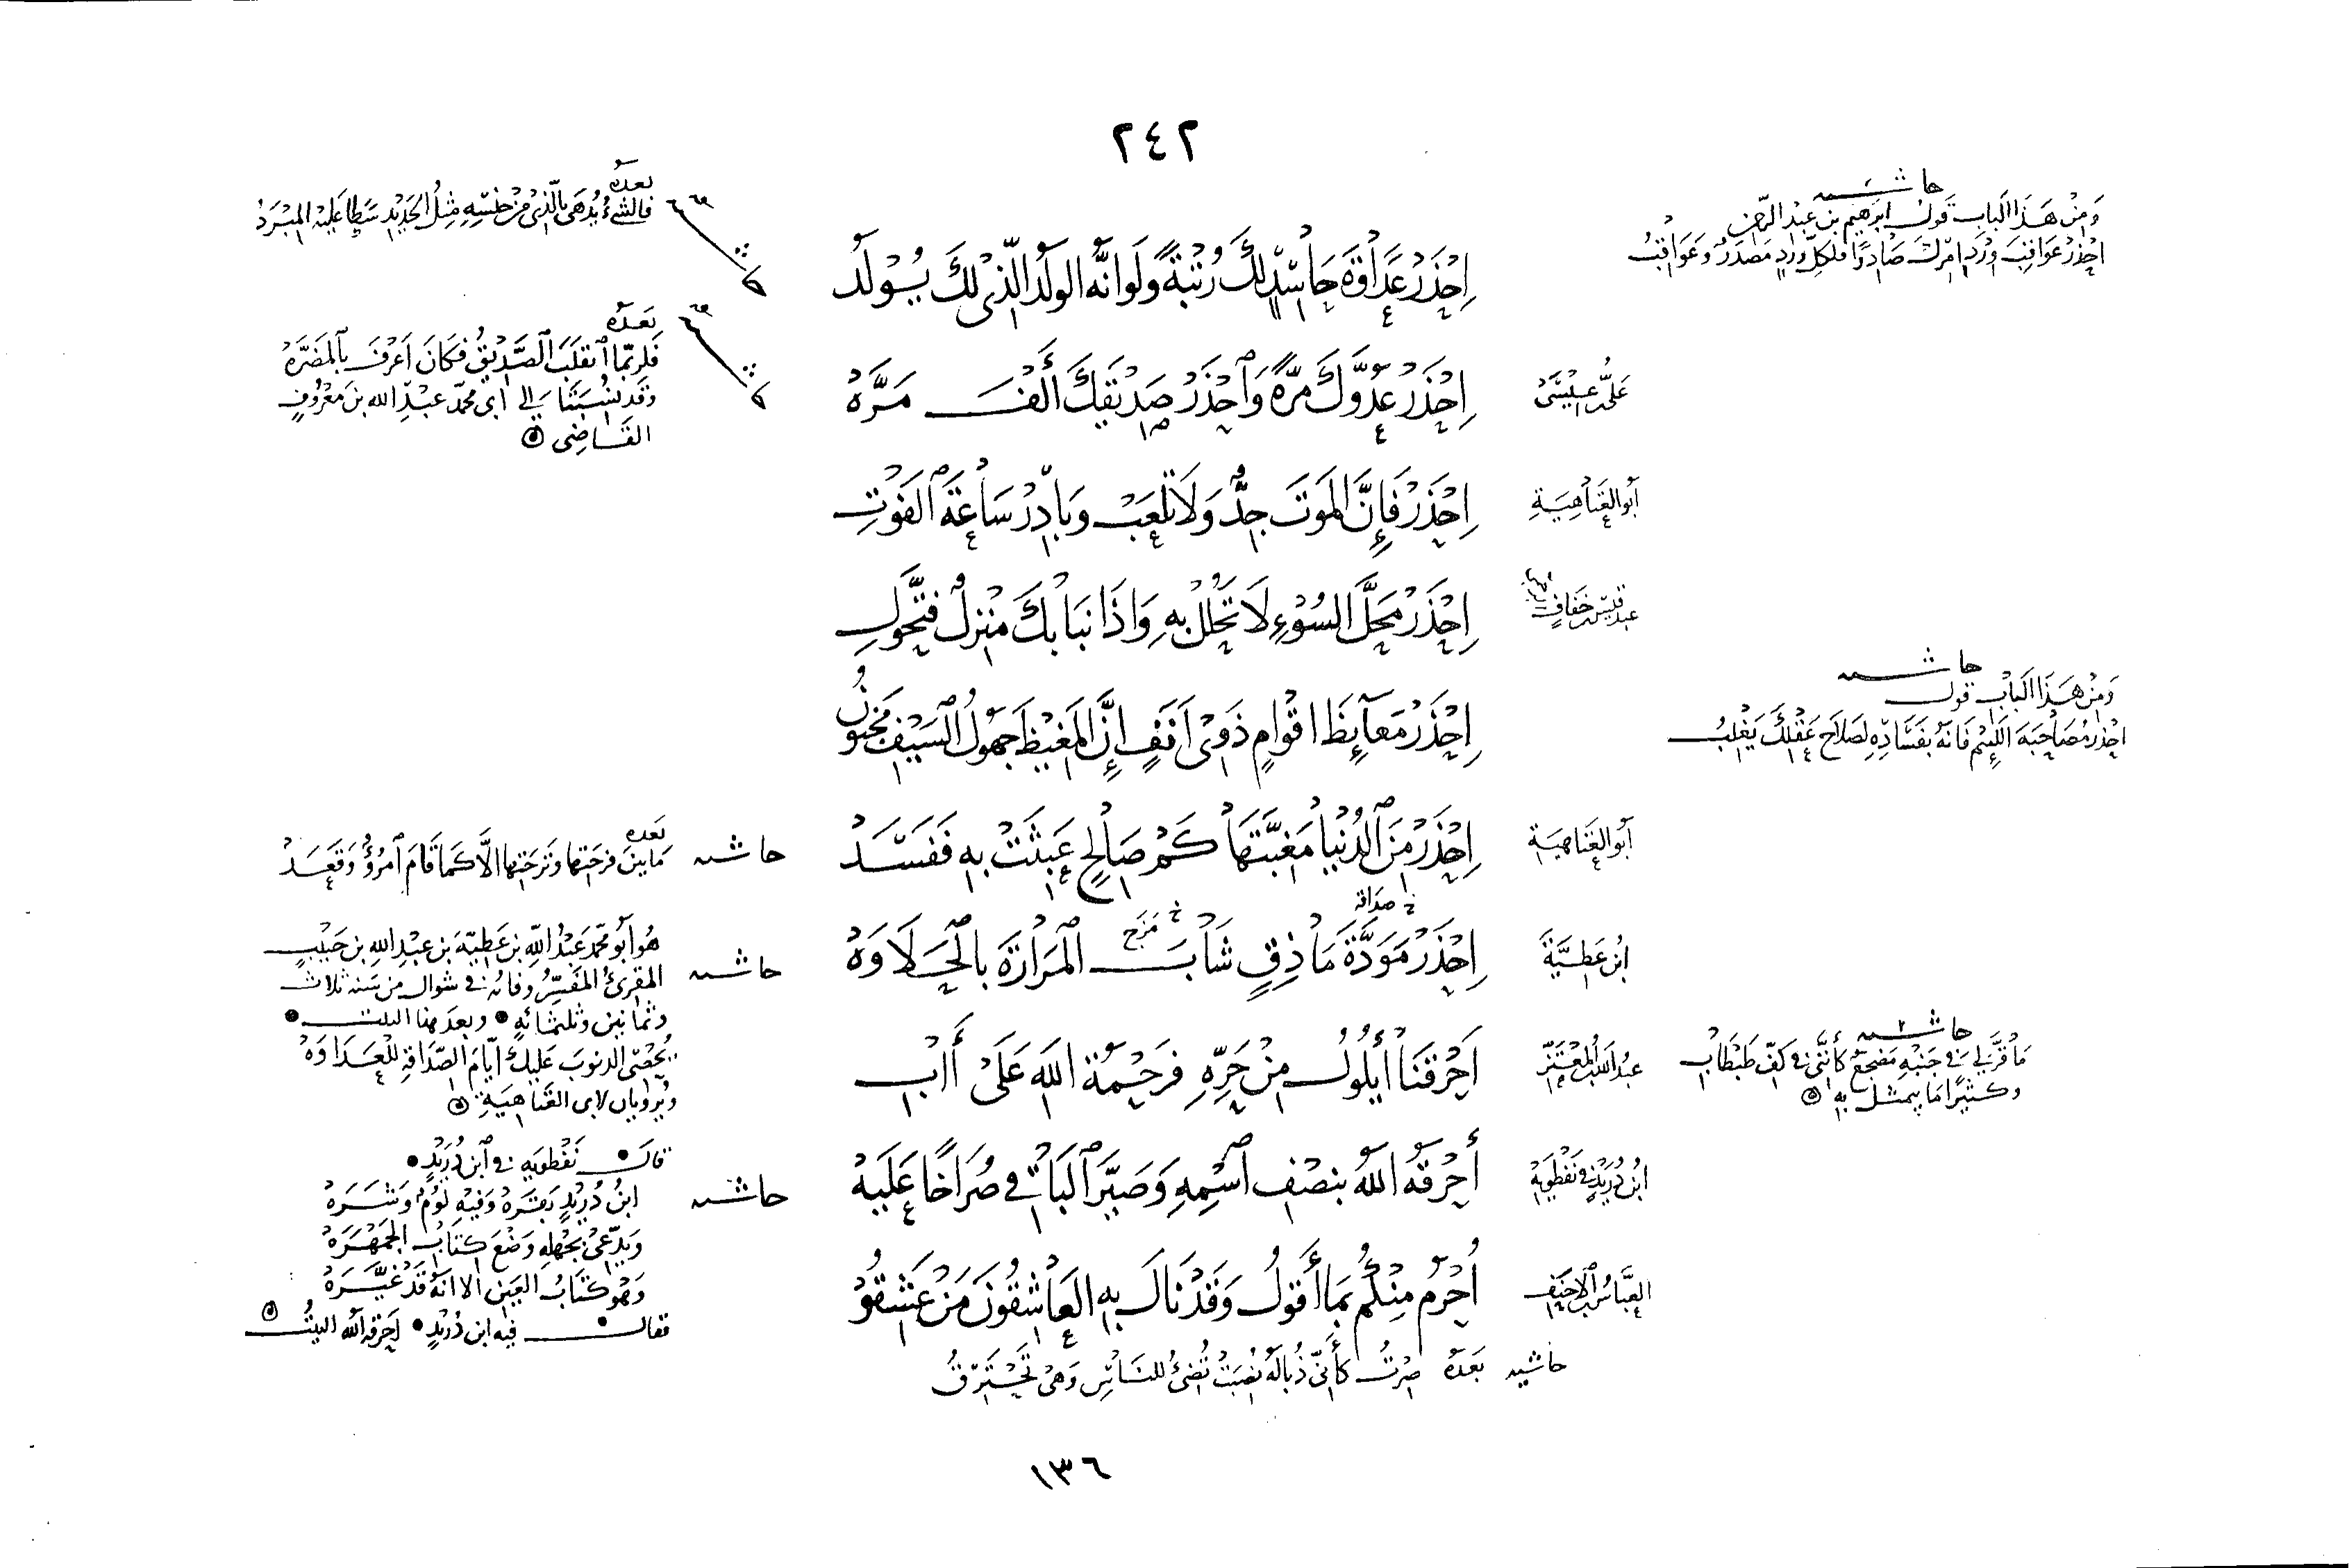 ٢٤٢
حاشية
وَمِنْ هَذَا البَابِ قَولُ ابرَهِيم بن عَبْد الرَّحْمنِ
احْذَرْ عَوَاقِبَ وِرْدِ امْرِكَ صَادِرًا فلِكلِّ وِرْدٍ مَصْدَرٌ وَعَوَاقِبُ
اِحْذَرْ عَدَاوَةَ حَاسِدٍ لكَ رُتْبَةً وَلَو انّهُ الولَدُ الّذِي لكَ يُسْوْلَدُ
حاشية
بَعدَهُ
فالشَّيءُ يُدْهَى بالّذي مِنْ جِنْسِهِ مِثْلُ الحَدِيْدِ سَطا عَليْهِ المِبْرَدُ
عَلي بن عيْسَى
اِحْذَرْ عَدُوَّكَ مرّةً وَاحْذَرْ صَدِيْقَكَ أَلْفَ مَرَّهْ
بَعدَهُ
فَلرُبّمَا انقَلَبَ الصَّدِيْقُ فَكَانَ اَعرَفَ بِالمَضَرَّهْ
وَقَد نُسِبَتَا إلى ابي محمّد عبْدِ الله بن مَعْرُوْفٍ
القَاضِي
أبو العَتَاهِيَةِ
اِحْذَرْ فَإنَّ المَوتَ جِدٌّ وَلَا تَلْعَبْ وَبَادِرْ سَاعَةَ الفَوْتِ
عبد قيس بن خفَافٍ
اِحْذَرْ مَحَلَّ السُوْءِ لَا تَحْلُلْ بِهِ وَاذَا نَبَا بكَ مَنْزِلٌ فتَحَولِ
حاشية
وَمِنْ هَذَا البَابِ قَولُ
احْذَرْ مُصَاحَبَةَ اللَّئِيْمِ فَانّهُ بفَسَادِهِ لِصَلَاحِ عَقْلِكَ يَغْلِبُ
اِحْذَرْ مَغَايِظَ اقْوامٍ ذَوِى اَنَفٍ إنَّ المَغِيْظَ جَهُولُ السَيْفِ مَجْنُونُ
أبو العَتاهِيَةِ
اِحْذَرْ مِنَ الدُنْيَا مَغَبَّتَهَا كَمْ صَالحٍ عَبِثَتْ بهِ فَفَسَدْ
حاشية
بَعده
مَا بَينَ فرحَتِها وَتَرحَتِها الَّا كَمَا قَامَ امْرُؤٌ وَقَعَدْ
خ صداقة
خ مَزَجَ
ابْن عَطِيَّةَ
اِحْذَرْ مَوَدَّةَ مَاذِقٍ شَابَ المَرَارَةَ بالحَلَاوَهْ
حاشية
هُوَ أبُو محَّمد عَبْدُ اللّهِ بن عَطِيّةَ بن عَبْدِ اللهِ بن حَبِيْبٍ
المقرئُ المُفَسِّرُ وفاتهُ في شوال من سَنة ثلاث
وثمانين وثلثمائةٍ • وبعدَ هذا البيت •
يُحْصِى الذنوبَ عَليكَ أيّامَ الصّدَاقةِ للعَدَاوَهْ
وَيُرويان لابى العَتَاهِيَةِ
حاشية
مَا قرَّ لي في جَنْبِهِ مَضجَعٌ كأنّني في كَفّ طَبْطَابِ
وكثيرًا مَا يتمثلُ بِهِ
عبدُ اللّه بن المُعْتَزّ
اَحْرَقَنَا أَيْلُوْلُ مِنْ حَرِّهِ فَرَحْمَةُ اللّهِ عَلَى أَابِ
ابْن دُرَيْدٍ في نَفْطَوَيْهِ
أَحْرَقَهُ اللّهُ بنصْفِ اسْمِهِ وَصَيَّرَ البَاقي صُرَاخًا عَلَيهْ
حاشية
قالَ نَفْطَويه في ابن دُرَيْدٍ •
ابنُ دُرَيْدٍ بَقَرَهْ وَفِيْهِ لُومٌ وشَرَهْ
وَيَدّعِى بجَهْلِهِ وَضْعَ كتَابِ الجَمْهَرَهْ
وَهْوَ كتَابُ العَيْنِ الا انّهُ قَدْ غَيَّرَهْ
فقال فيه ابن دُرَيْدٍ • احَرقهُ اللّهُ البيتُ
العَبَّاسُ بن الاحنَفِ
أُحْرَمُ مِنْكُمُ بمَا أَقولُ وَقَدْ نَالَ بهِ العَاشِقُونَ مَنْ عَشِقُوْا
حاشية بَعدَهُ صِرْتُ كأَنّي ذُبَالَةٌ نُصِبَتْ تُضِئُ للنَّاسِ وَهْيَ تَحْتَرِقُ
١٣٦